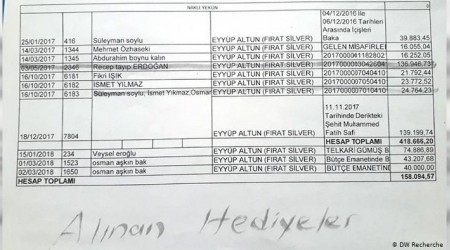 NAKLİ YEKÜN 0
04/12/2016 İle
06/12/2016 Tarihleri
Arasında İçişleri
25/01/2017 416 Süleyman soylu EYYÜP ALTUN (FIRAT SILVER) Baka 39.883,45
14/03/2017 1344 Mehmet Özhaseki EYYÜP ALTUN (FIRAT SILVER) GELEN MİSAFİRLE 16.055,04
14/03/2017 1345 Abdurahim boynu kalın EYYÜP ALTUN (FIRAT SILVER) 16.252,05
Recep tayip ERDOĞAN EYYÜP ALTUN (FIRAT SILVER)
16/10/2017 6181 Fikri IŞIK EYYÜP ALTUN (FIRAT SILVER) 2017000070410410 21.792,44
16/10/2017 6182 İSMET YILMAZ EYYÜP ALTUN (FIRAT SILVER) 23.772,52
16/10/2017 6183 Süleyman soylu, İsmet Yıkmaz,Osman EYYÜP ALTUN (FIRAT SILVER) 24.764,23
11.11.2017
Tarihinde Derikteki
Şehit Muhammed
18/12/2017 7804 EYYÜP ALTUN (FIRAT SILVER) Fatih Safi 139.199,74
HESAP TOPLAMI 418.666,20
15/01/2018 234 Vaysel eroğlu EYYÜP ALTUN (FIRAT SILVER) TELKARİ GÜMÜŞ B 74.886,89
01/03/2018 1523 osman aşkın bak EYYÜP ALTUN (FIRAT SILVER) Bütçe Emanetinde B 43.207,68
02/03/2018 1650 osman aşkın bak EYYÜP ALTUN (FIRAT SILVER) BÜTÇE EMANETİN 40.000,00
HESAP TOPLAMI 158.094,57
Alınan Hediyeler
© DW Recherche